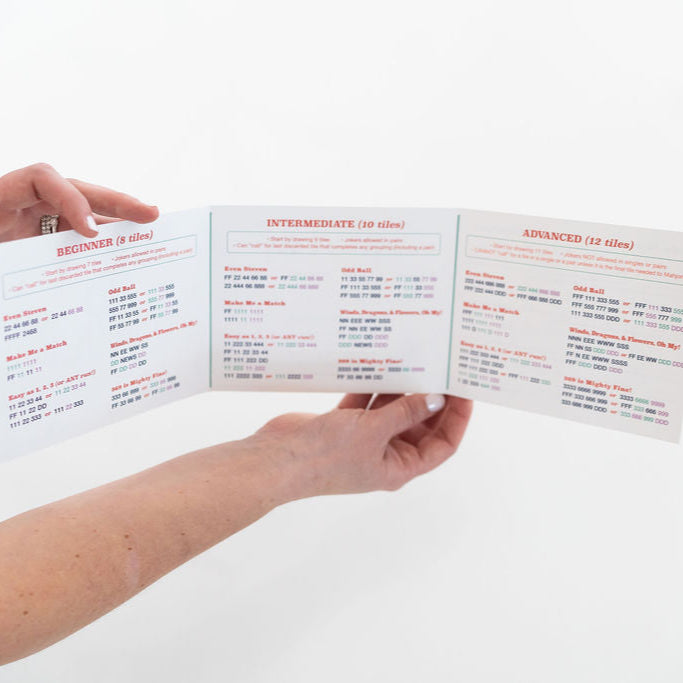 BEGINNER (8 tiles)
• Start by drawing 7 tiles • Jokers allowed in pairs
• Can "call" for last discarded tile that completes any grouping (including a pair)
Even Steven
22 44 66 88 or 22 44 66 88
FFFF 2468
Make Me a Match
FF 11 11 11
Easy as 1, 2, 3 (or ANY run!)
11 22 33 44 or 11 22 33 44
FF 11 22 DD
111 22 333 or 111 22 333
Odd Ball
111 33 555 or 111 33 555
555 77 999 or 555 77 999
FF 11 33 55 or FF 11 33 55
FF 55 77 99 or FF 55 77 99
Winds, Dragons, & Flowers, Oh My!
NN EE WW SS
DD NEWS DD
FF DD DD DD
369 is Mighty Fine!
333 66 999 or 333 66 999
FF 33 66 99 or FF 33 66 99
INTERMEDIATE (10 tiles)
• Start by drawing 9 tiles • Jokers allowed in pairs
• Can "call" for last discarded tile that completes any grouping (including a pair)
Even Steven
FF 22 44 66 88 or FF 22 44 66 88
22 444 66 888 or 22 444 66 888
Make Me a Match
FF 1111 1111
1111 11 1111
Easy as 1, 2, 3 (or ANY run!)
11 222 33 444 or 11 222 33 444
FF 11 22 33 44
FF 111 222 DD
11 222 11 222
111 2222 333 or 111 2222 333
Odd Ball
11 33 55 77 99 or 11 33 55 77 99
FF 111 33 555 or FF 111 33 555
FF 555 77 999 or FF 555 77 999
Winds, Dragons, & Flowers, Oh My!
NN EEE WW SSS
FF NN EE WW SS
FFFF DD DD DD
DDD NEWS DDD
369 is Mighty Fine!
3333 66 9999 or 3333 66 9999
FF 33 66 99 DD
ADVANCED (12 tiles)
• Start by drawing 11 tiles • Jokers NOT allowed in singles or pairs
Even Steven
22 444 666 8888 or 22 444 666 8888
222 444 DDD or FFF 666 888 DDD
Make Me a Match
Easy as 1, 2, 3 (or ANY run!)
Odd Ball
FFF 111 333 555 or FFF 111 333 555
FFF 555 777 999 or FFF 555 777 999
111 333 555 DDD or 111 333 555 DDD
Winds, Dragons, & Flowers, Oh My!
NNN EEE WWW SSS
FF NN SS DDD DDD or FF EE WW DDD DDD
FF N EE WWW SSSS
FFF DDD DDD DDD
369 is Mighty Fine!
3333 6666 9999 or 3333 6666 9999
FFF 333 666 999 or FFF 333 666 999
333 666 999 DDD or 333 666 999 DDD